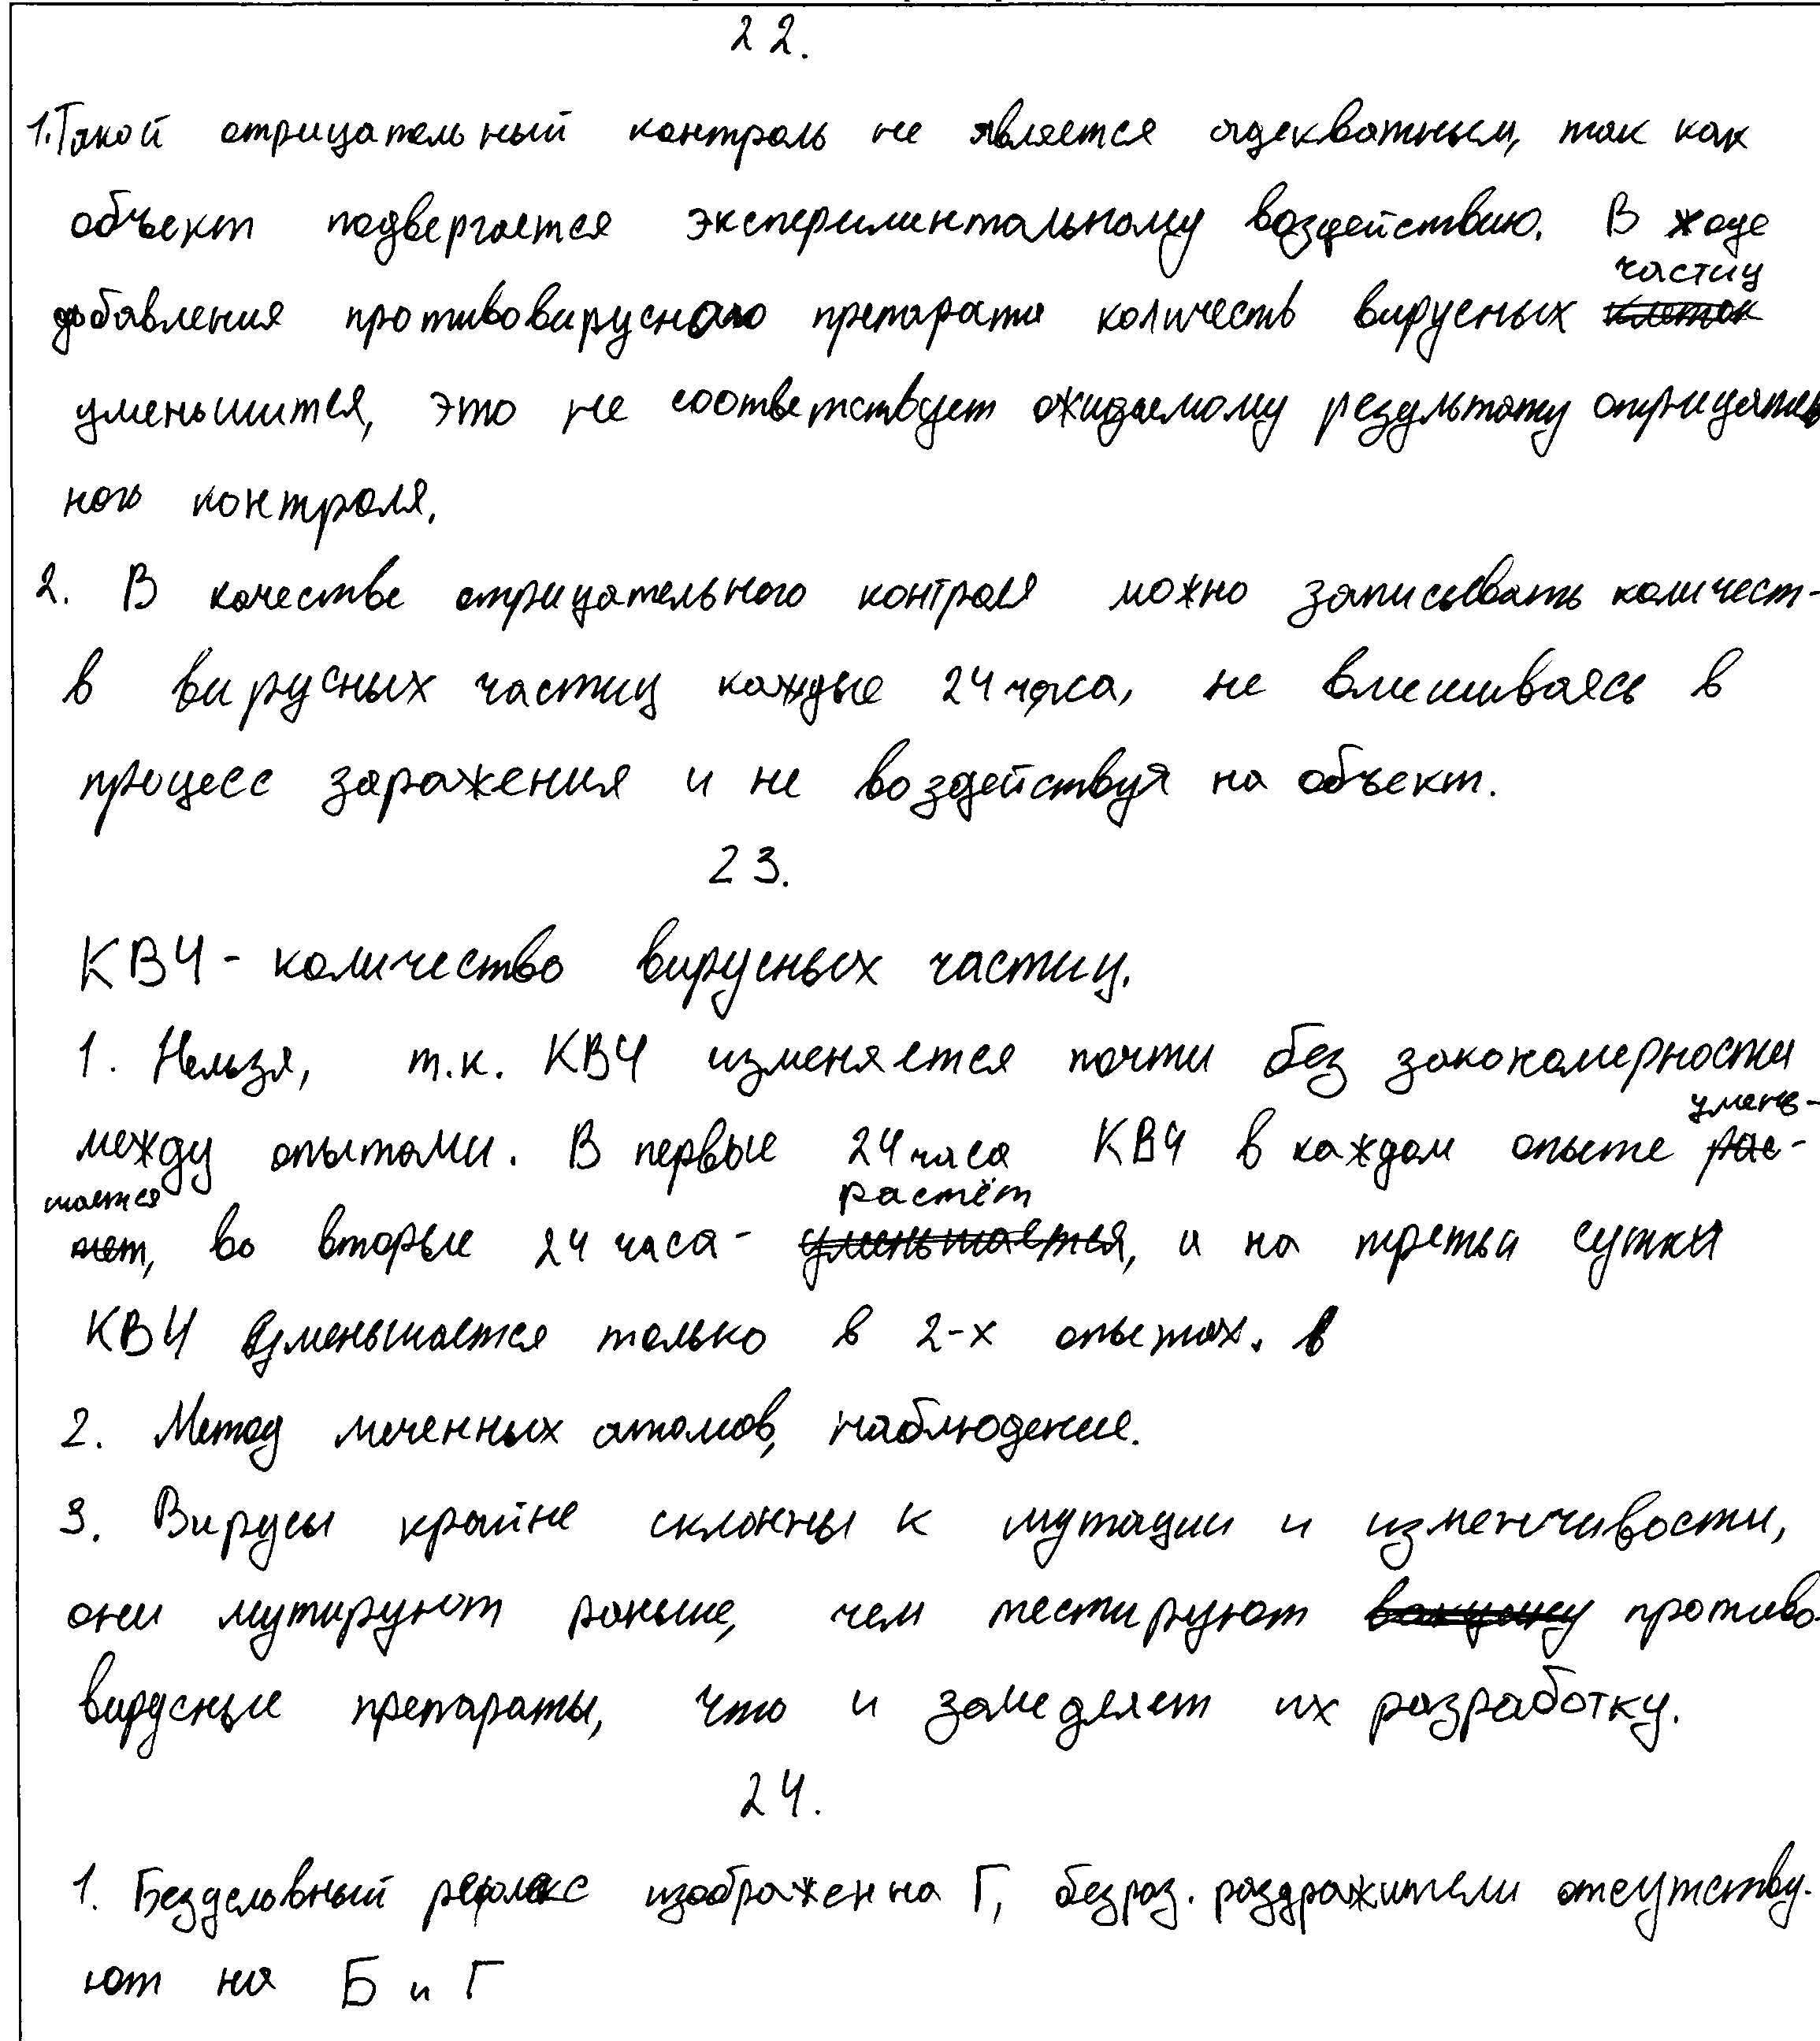 22.
1. Такой отрицательный контроль не является адекватным, так как
объект подвергается экспериментальному воздействию. В ходе
добавления противовирусного препарата количеств вирусных ~~клеток~~ частиц
уменьшится, это не соответствует ожидаемому результату отрицатель
ного контроля.
2. В качестве отрицательного контроля можно записывать количест-
в вирусных частиц каждые 24 часа, не вмешиваясь в
процесс заражения и не воздействуя на объект.
23.
КВЧ - количество вирусных частиц.
1. Нельзя, т.к. КВЧ изменяется почти без закономерности
между опытами. В первые 24 часа КВЧ в каждом опыте ~~рас-~~ умень-
~~тет~~ шается, во вторые 24 часа - ~~уменьшается~~ растёт, и на третьи сутки
КВЧ уменьшается только в 2-х опытах. в
2. Метод меченных атомов, наблюдение.
3. Вирусы крайне склонны к мутации и изменчивости,
они мутируют раньше, чем тестируют ~~вакцину~~ противо-
вирусные препараты, что и замедляет их разработку.
24.
1. Безусловный рефлекс изображен на Г, безраз. раздражители отсутству-
ют на Б и Г